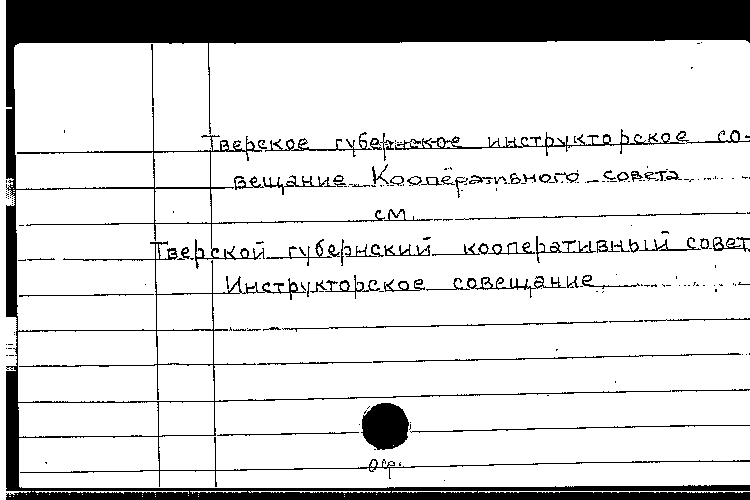 Тверское губернское инструкторское со-
вещание Кооперативного совета
см.
Тверской губернский кооперативный совет
Инструкторское совещание